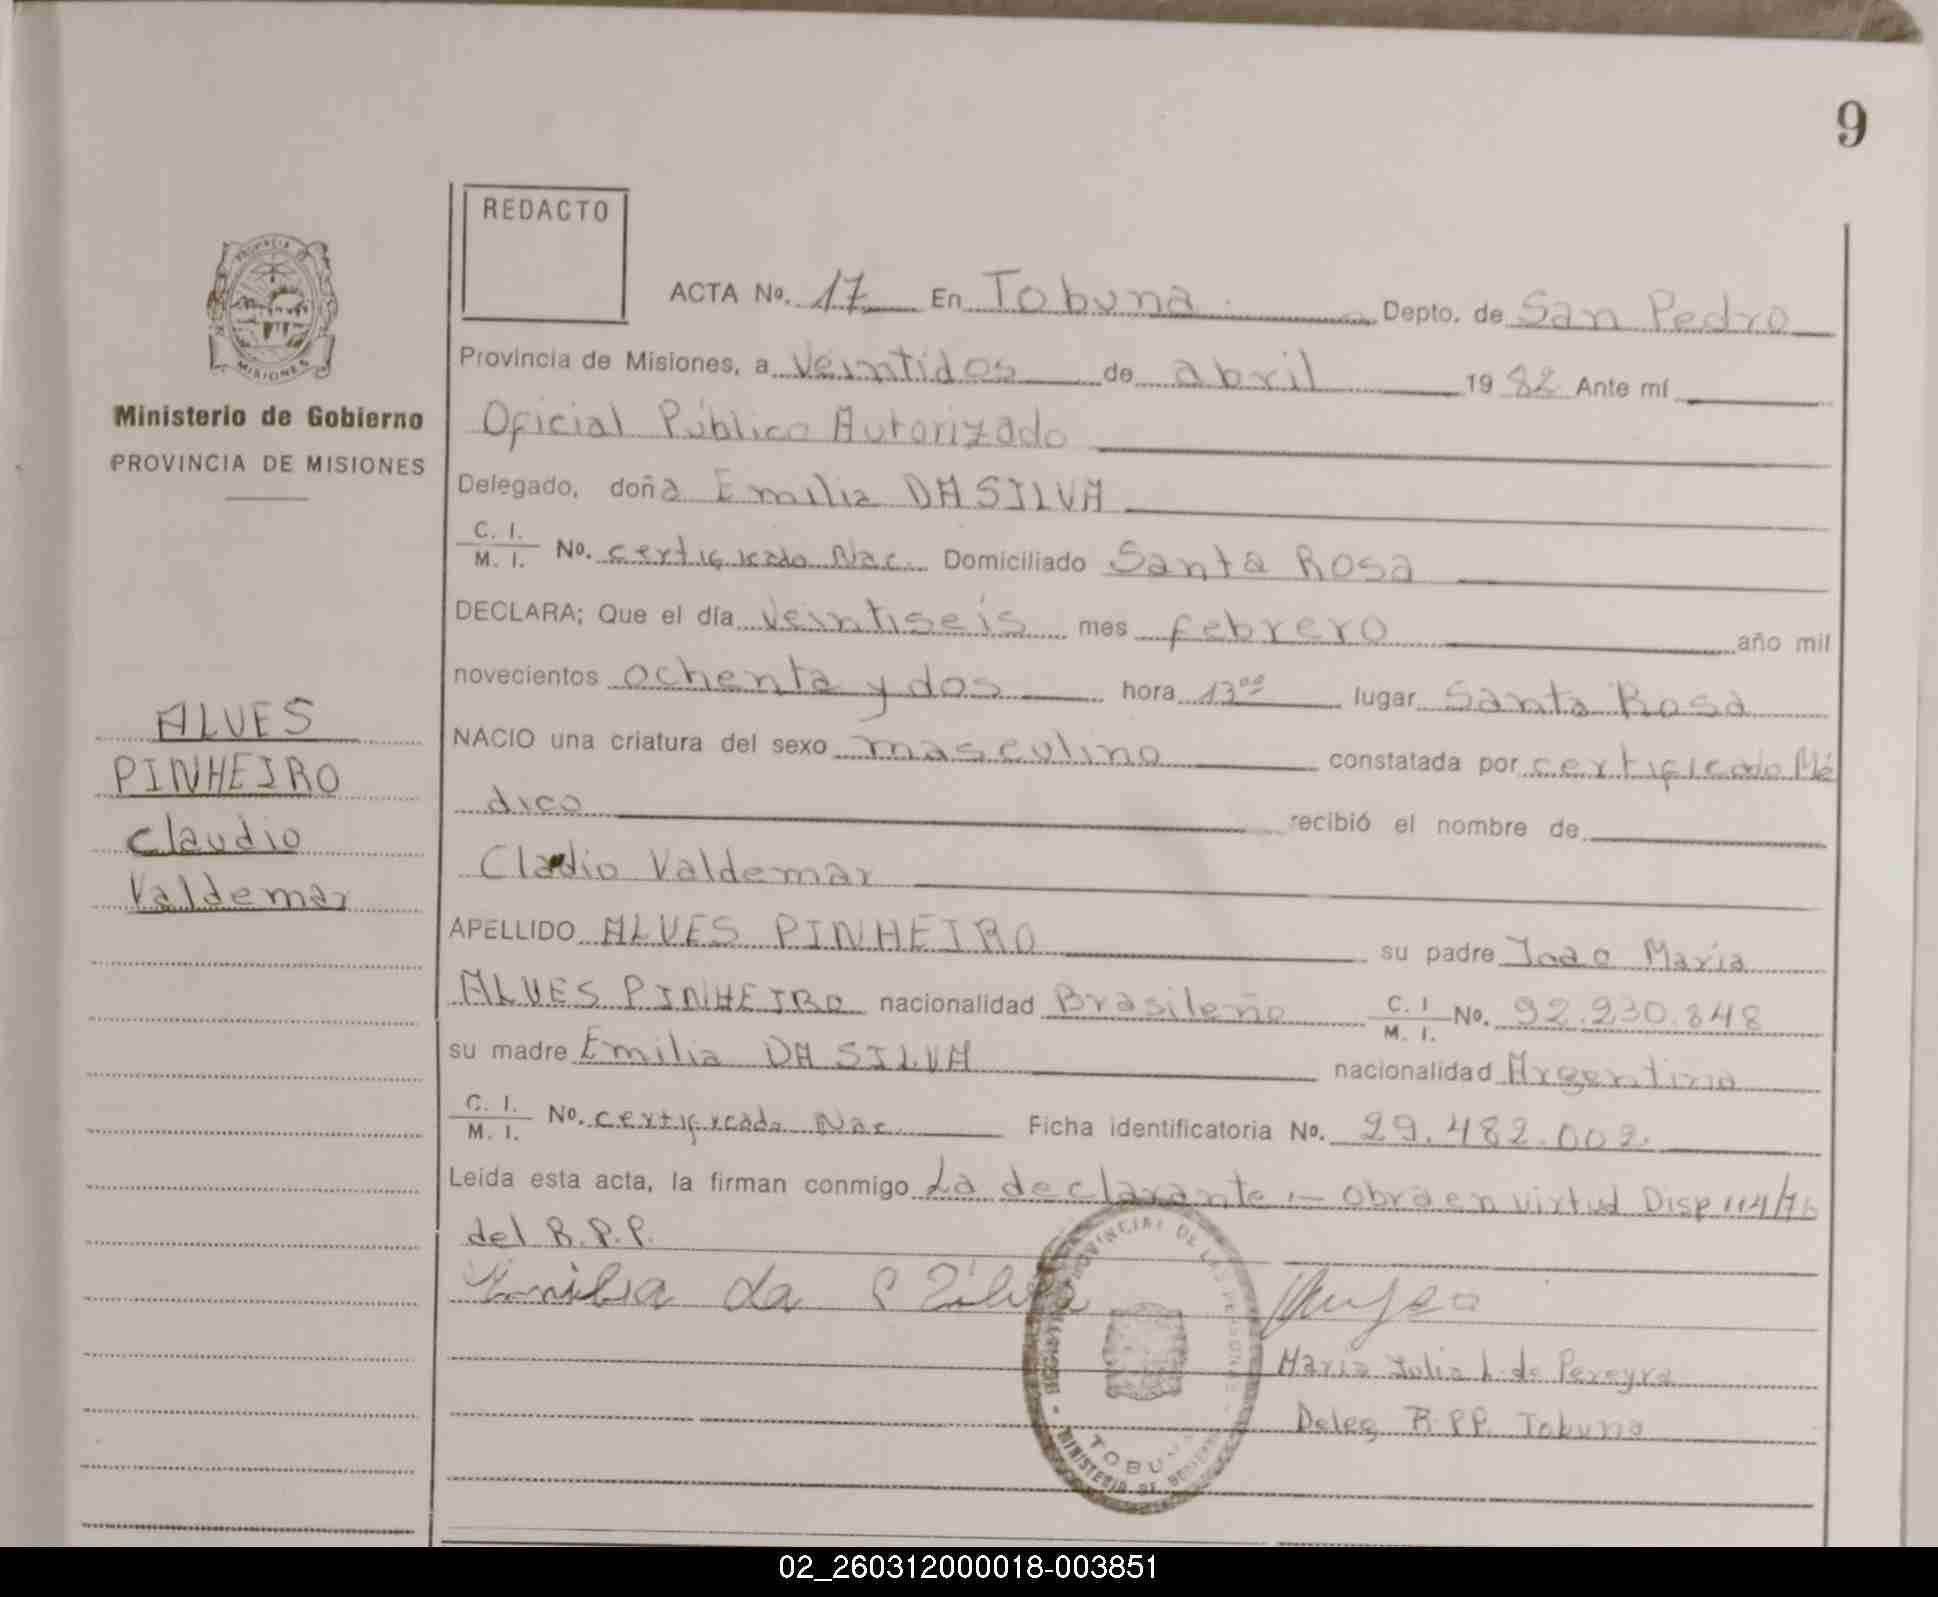 9
REDACTO
ACTA No. 17 En Tobuna Depto. de San Pedro
Provincia de Misiones, a Veintidos de abril 1982 Ante mí
Oficial Público Autorizado
Delegado, doña Emilia DA SILVA
C. I. / M. I. No. certificado Nac. Domiciliado Santa Rosa
DECLARA; Que el día veintiseis mes febrero año mil
novecientos ochenta y dos hora 13⁰⁰ lugar Santa Rosa
NACIO una criatura del sexo masculino constatada por certificado Mé
dico recibió el nombre de
Cladio Valdemar
APELLIDO ALVES PINHEIRO su padre Joao María
ALVES PINHEIRO nacionalidad Brasileño C. I / M. I. No. 92.930.848
su madre Emilia DA SILVA nacionalidad Argentina
C. I. / M. I. No. certificado Nac. Ficha identificatoria No. 29.482.002.
Leída esta acta, la firman conmigo La declarante.- Obra en virtud Disp 114/76
del R.P.P.
Emilia da Silva
María Julia L. de Pereyra
Deleg R.PP. Tobuna
PROVINCIA DE MISIONES
Ministerio de Gobierno
PROVINCIA DE MISIONES
ALVES
PINHEIRO
Claudio
Valdemar
REGISTRO PROVINCIAL DE LAS PERSONAS
TOBUNA
MINISTERIO DE GOBIERNO
02_260312000018-003851